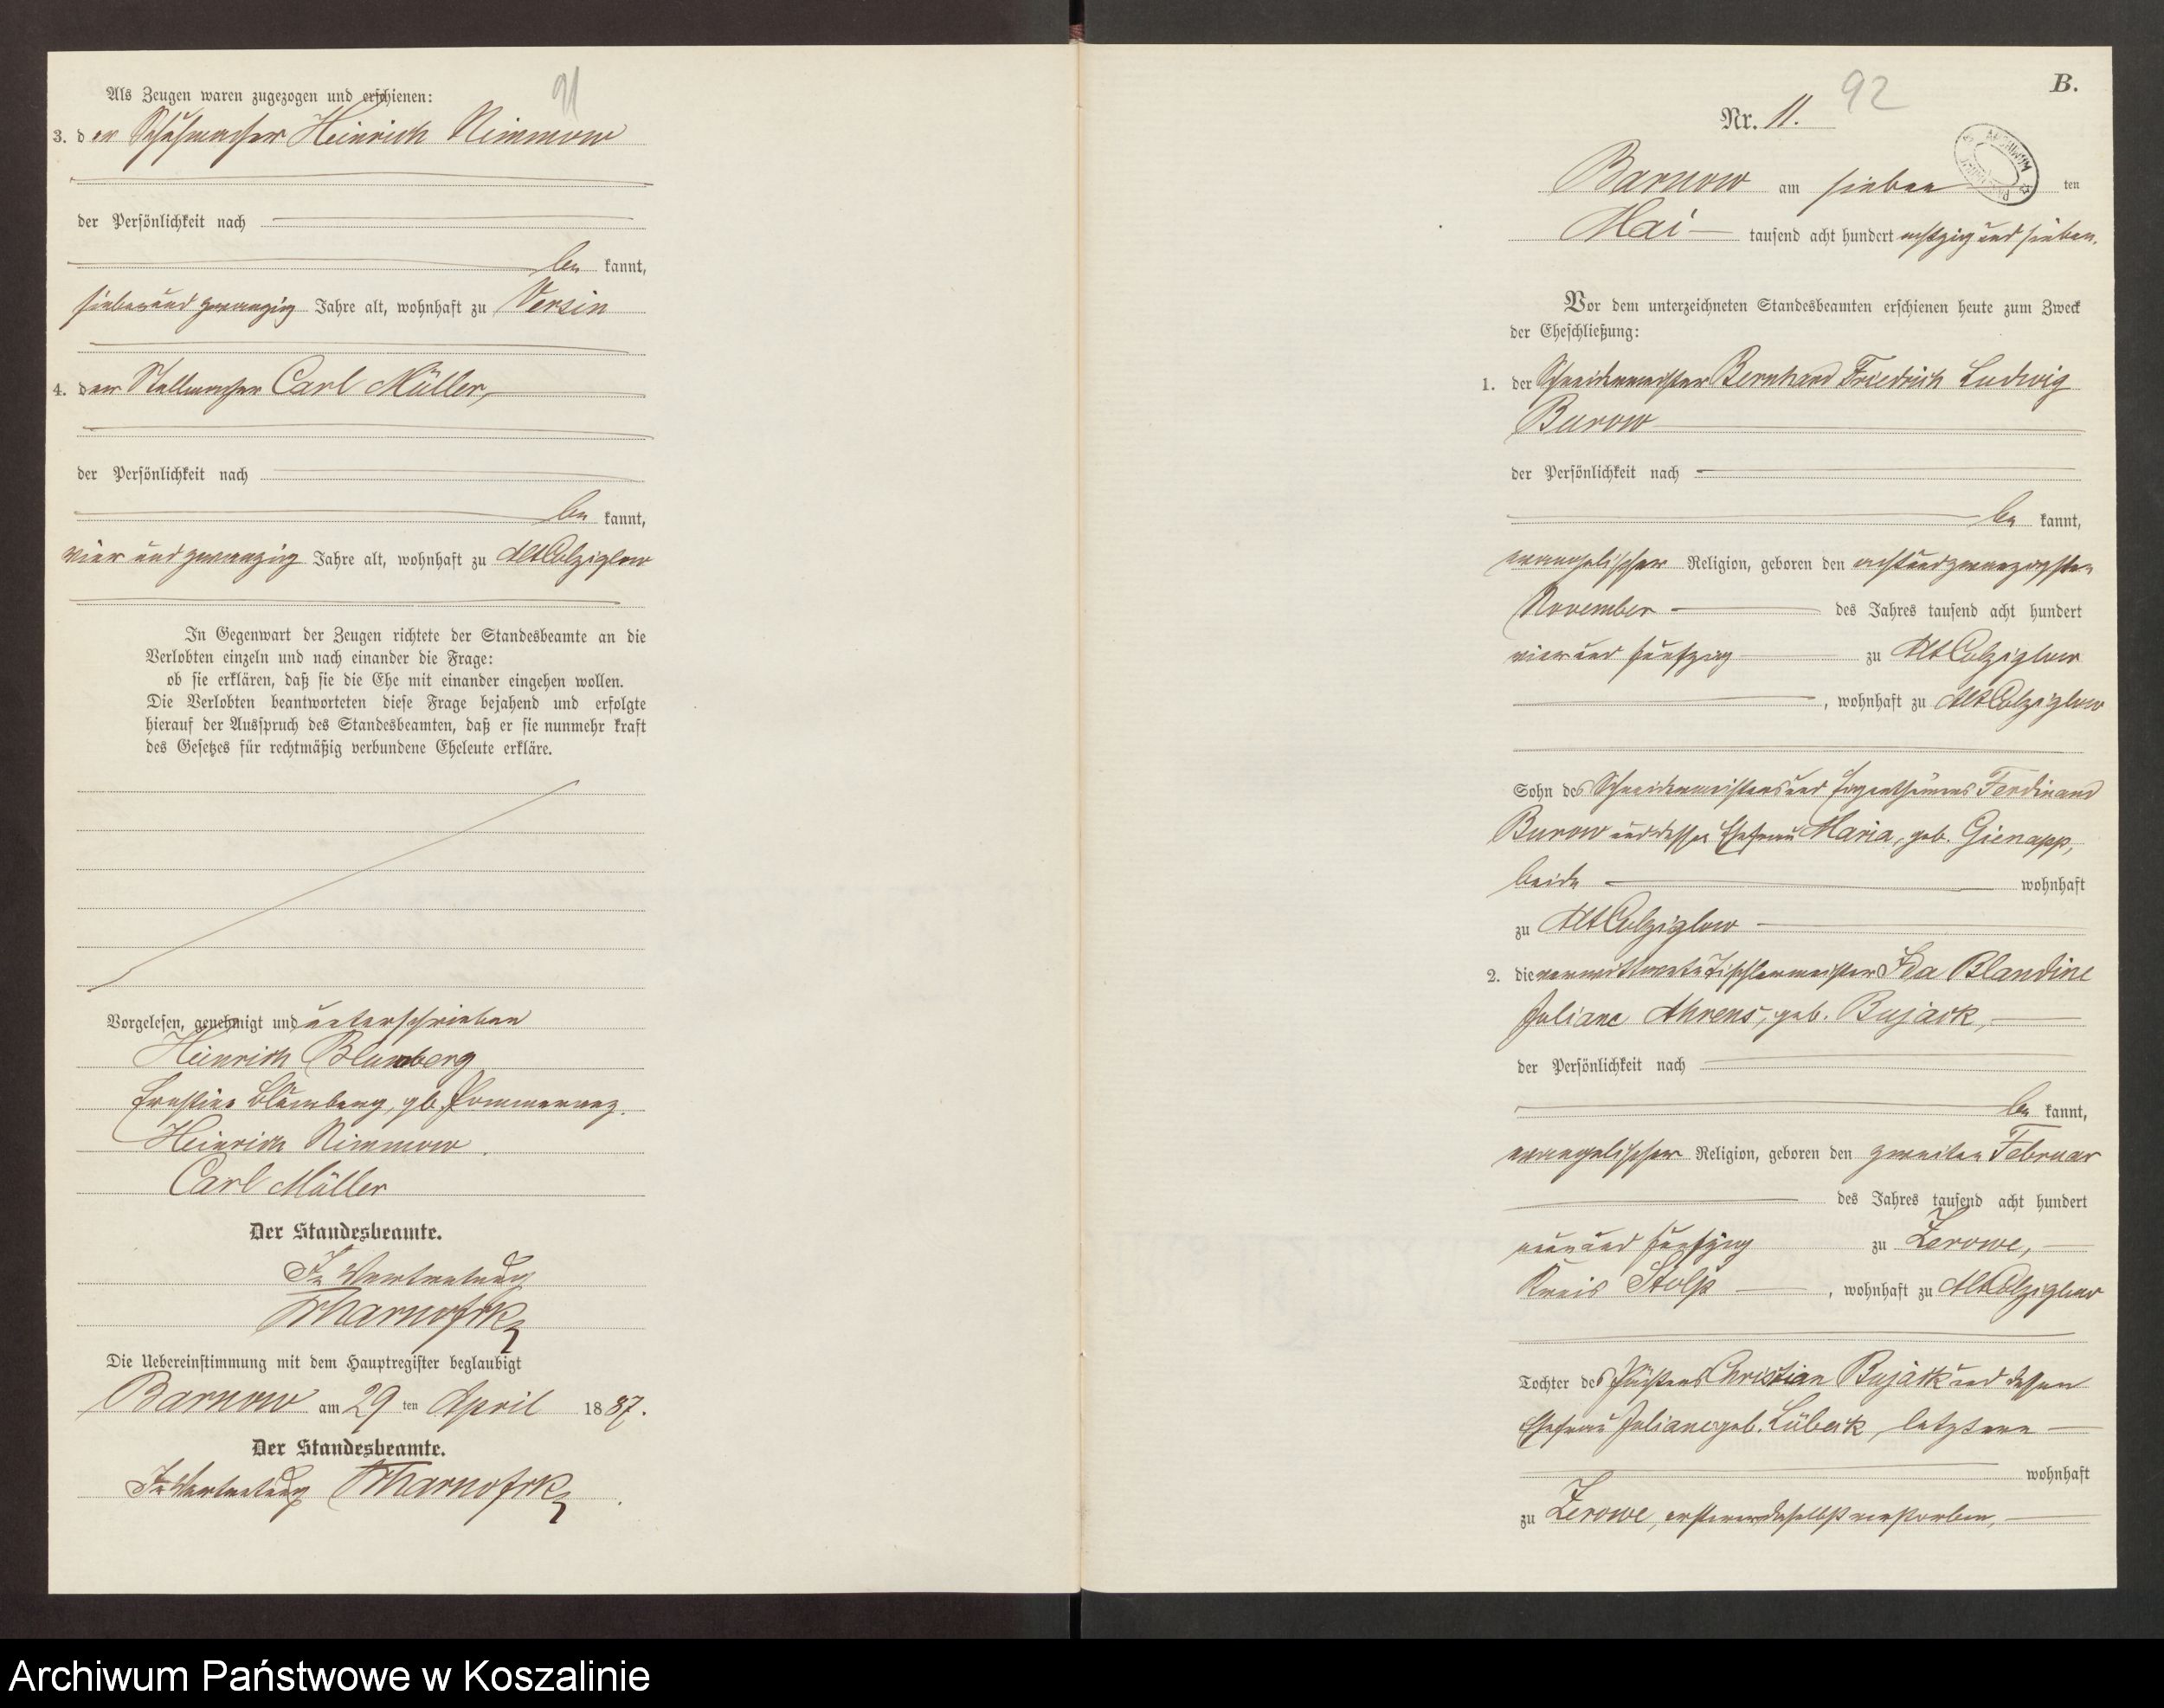 91
Als Zeugen waren zugezogen und erschienen:
3. den Schuhmacher Heinrich Nimmow
der Persönlichkeit nach
be kannt,
siebenundzwanzig Jahre alt, wohnhaft zu Versin
4. der Stellmacher Carl Müller,
der Persönlichkeit nach
be kannt,
vier und zwanzig Jahre alt, wohnhaft zu Alt Colziglow
In Gegenwart der Zeugen richtete der Standesbeamte an die
Verlobten einzeln und nach einander die Frage:
ob sie erklären, daß sie die Ehe mit einander eingehen wollen.
Die Verlobten beantworteten diese Frage bejahend und erfolgte
hierauf der Ausspruch des Standesbeamten, daß er sie nunmehr kraft
des Gesetzes für rechtmäßig verbundene Eheleute erkläre.
Vorgelesen, genehmigt und unterschrieben
Heinrich Blumberg
Ernstine Blumberg, gb. Pommerenz.
Heinrich Nimmow.
Carl Müller
Der Standesbeamte.
In Vertretung
Die Uebereinstimmung mit dem Hauptregister beglaubigt
Barnow am 29 ten April 1887.
Der Standesbeamte.
In Vertretung
92
B.
Nr. 11.
Barnow am sieben ten
Mai tausend acht hundert achtzig und sieben.
Vor dem unterzeichneten Standesbeamten erschienen heute zum Zweck
der Eheschließung:
1. der Schneidermeister Bernhard Friedrich Ludwig
Burow
der Persönlichkeit nach
be kannt,
evangelischer Religion, geboren den achtundzwanzigsten
November des Jahres tausend acht hundert
vier und fünfzig zu Alt Colziglow
, wohnhaft zu Alt Colziglow
Sohn des Schneidermeisters und Eigenthümers Ferdinand
Burow und dessen Ehefrau Maria, geb. Gienapp,
beide wohnhaft
zu Alt Colziglow
2. die verwittwete Tischlermeister Ida Blandine
Juliane Ahrens, geb. Bujack,
der Persönlichkeit nach
be kannt,
evangelischer Religion, geboren den zweiten Februar
des Jahres tausend acht hundert
neun und fünfzig zu Zerowe,
Kreis Stolp, wohnhaft zu Alt Colziglow
Tochter des Christian Bujack und dessen
Ehefrau Juliane geb. Lübeck, letztere
wohnhaft
zu Zerowe, ersterer daselbst verstorben,
Archiwum Państwowe w Koszalinie